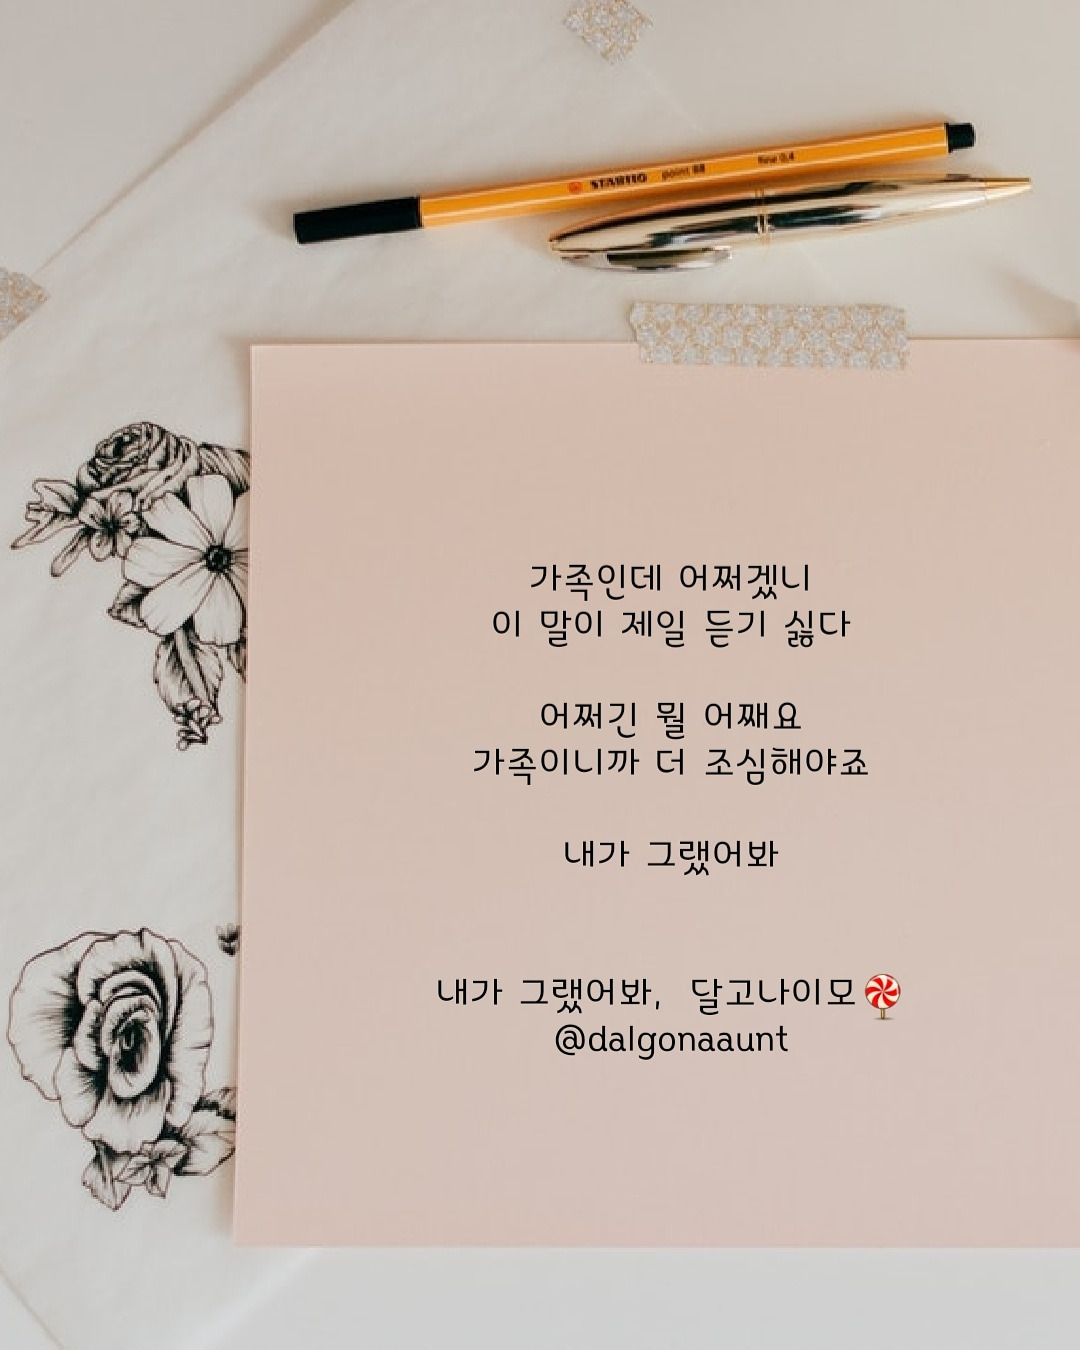 STABILO point 88 fine 0.4
가족인데 어쩌겠니
이 말이 제일 듣기 싫다
어쩌긴 뭘 어째요
가족이니까 더 조심해야죠
내가 그랬어봐
내가 그랬어봐, 달고나이모🍭
@dalgonaaunt